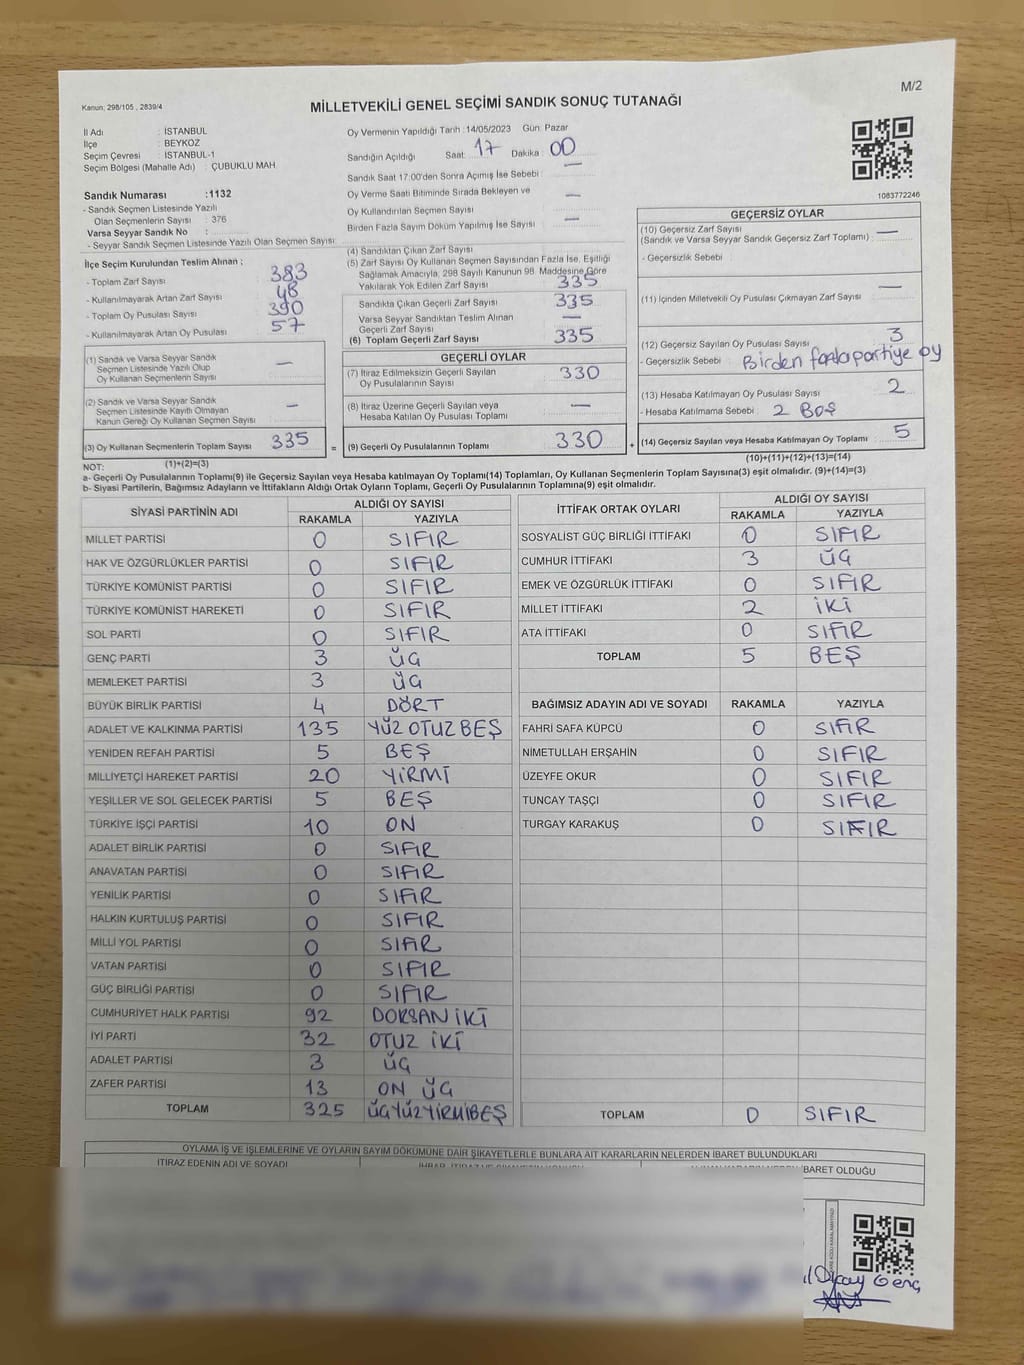 M/2
Kanun; 298/105 , 2839/4
MİLLETVEKİLİ GENEL SEÇİMİ SANDIK SONUÇ TUTANAĞI
İl Adı : İSTANBUL
İlçe : BEYKOZ
Seçim Çevresi : İSTANBUL-1
Seçim Bölgesi (Mahalle Adı) : ÇUBUKLU MAH.
Sandık Numarası :1132
- Sandık Seçmen Listesinde Yazılı
Olan Seçmenlerin Sayısı : 376
Varsa Seyyar Sandık No :
- Seyyar Sandık Seçmen Listesinde Yazılı Olan Seçmen Sayısı:
İlçe Seçim Kurulundan Teslim Alınan ;
- Toplam Zarf Sayısı : 383
- Kullanılmayarak Artan Zarf Sayısı : 48
- Toplam Oy Pusulası Sayısı : 390
- Kullanılmayarak Artan Oy Pusulası : 57
(1) Sandık ve Varsa Seyyar Sandık
Seçmen Listesinde Yazılı Olup
Oy Kullanan Seçmenlerin Sayısı : —
(2) Sandık ve Varsa Seyyar Sandık
Seçmen Listesinde Kayıtlı Olmayan
Kanun Gereği Oy Kullanan Seçmen Sayısı : —
(3) Oy Kullanan Seçmenlerin Toplam Sayısı : 335
(1)+(2)=(3)
Oy Vermenin Yapıldığı Tarih :14/05/2023 Gün: Pazar
Sandığın Açıldığı Saat: 17 Dakika: 00
Sandık Saat 17:00'den Sonra Açımış İse Sebebi : —
Oy Verme Saati Bitiminde Sırada Bekleyen ve
Oy Kullandırılan Seçmen Sayısı : —
Birden Fazla Sayım Döküm Yapılmış İse Sayısı : —
(4) Sandıktan Çıkan Zarf Sayısı :
(5) Zarf Sayısı Oy Kullanan Seçmen Sayısından Fazla İse, Eşitliği
Sağlamak Amacıyla, 298 Sayılı Kanunun 98. Maddesine Göre
Yakılarak Yok Edilen Zarf Sayısı : 335
Sandıkta Çıkan Geçerli Zarf Sayısı : 335
Varsa Seyyar Sandıktan Teslim Alınan
Geçerli Zarf Sayısı : —
(6) Toplam Geçerli Zarf Sayısı : 335
GEÇERLİ OYLAR
(7) İtiraz Edilmeksizin Geçerli Sayılan
Oy Pusulalarının Sayısı : 330
(8) İtiraz Üzerine Geçerli Sayılan veya
Hesaba Katılan Oy Pusulası Toplamı : —
= (9) Geçerli Oy Pusulalarının Toplamı : 330 +
1083772246
GEÇERSİZ OYLAR
(10) Geçersiz Zarf Sayısı
(Sandık ve Varsa Seyyar Sandık Geçersiz Zarf Toplamı) : —
- Geçersizlik Sebebi :
(11) İçinden Milletvekili Oy Pusulası Çıkmayan Zarf Sayısı : —
(12) Geçersiz Sayılan Oy Pusulası Sayısı : 3
- Geçersizlik Sebebi : Birden fazla partiye oy
(13) Hesaba Katılmayan Oy Pusulası Sayısı : 2
- Hesaba Katılmama Sebebi : 2 BOŞ
(14) Geçersiz Sayılan veya Hesaba Katılmayan Oy Toplamı : 5
(10)+(11)+(12)+(13)=(14)
NOT:
a- Geçerli Oy Pusulalarının Toplamı(9) ile Geçersiz Sayılan veya Hesaba Katılmayan Oy Toplamı(14) Toplamları, Oy Kullanan Seçmenlerin Toplam Sayısına(3) eşit olmalıdır. (9)+(14)=(3)
b- Siyasi Partilerin, Bağımsız Adayların ve İttifakların Aldığı Ortak Oyların Toplamı, Geçerli Oy Pusulalarının Toplamına(9) eşit olmalıdır.
SİYASİ PARTİNİN ADI ALDIĞI OY SAYISI
RAKAMLA YAZIYLA
MİLLET PARTİSİ 0 SIFIR
HAK VE ÖZGÜRLÜKLER PARTİSİ 0 SIFIR
TÜRKİYE KOMÜNİST PARTİSİ 0 SIFIR
TÜRKİYE KOMÜNİST HAREKETİ 0 SIFIR
SOL PARTİ 0 SIFIR
GENÇ PARTİ 3 ÜÇ
MEMLEKET PARTİSİ 3 ÜÇ
BÜYÜK BİRLİK PARTİSİ 4 DÖRT
ADALET VE KALKINMA PARTİSİ 135 YÜZ OTUZ BEŞ
YENİDEN REFAH PARTİSİ 5 BEŞ
MİLLİYETÇİ HAREKET PARTİSİ 20 YİRMİ
YEŞİLLER VE SOL GELECEK PARTİSİ 5 BEŞ
TÜRKİYE İŞÇİ PARTİSİ 10 ON
ADALET BİRLİK PARTİSİ 0 SIFIR
ANAVATAN PARTİSİ 0 SIFIR
YENİLİK PARTİSİ 0 SIFIR
HALKIN KURTULUŞ PARTİSİ 0 SIFIR
MİLLİ YOL PARTİSİ 0 SIFIR
VATAN PARTİSİ 0 SIFIR
GÜÇ BİRLİĞİ PARTİSİ 0 SIFIR
CUMHURİYET HALK PARTİSİ 92 DOKSAN İKİ
İYİ PARTİ 32 OTUZ İKİ
ADALET PARTİSİ 3 ÜÇ
ZAFER PARTİSİ 13 ON ÜÇ
TOPLAM 325 ÜÇYÜZYİRMİBEŞ
İTTİFAK ORTAK OYLARI ALDIĞI OY SAYISI
RAKAMLA YAZIYLA
SOSYALİST GÜÇ BİRLİĞİ İTTİFAKI 0 SIFIR
CUMHUR İTTİFAKI 3 ÜÇ
EMEK VE ÖZGÜRLÜK İTTİFAKI 0 SIFIR
MİLLET İTTİFAKI 2 İKİ
ATA İTTİFAKI 0 SIFIR
TOPLAM 5 BEŞ
BAĞIMSIZ ADAYIN ADI VE SOYADI RAKAMLA YAZIYLA
FAHRİ SAFA KÜPCÜ 0 SIFIR
NİMETULLAH ERŞAHİN 0 SIFIR
ÜZEYFE OKUR 0 SIFIR
TUNCAY TAŞÇI 0 SIFIR
TURGAY KARAKUŞ 0 SIFIR
TOPLAM 0 SIFIR
OYLAMA İŞ VE İŞLEMLERİNE VE OYLARIN SAYIM DÖKÜMÜNE DAİR ŞİKAYETLERLE BUNLARA AİT KARARLARIN NELERDEN İBARET BULUNDUKLARI
İTİRAZ EDENİN ADI VE SOYADI
İBARET OLDUĞU
Olcay Genç